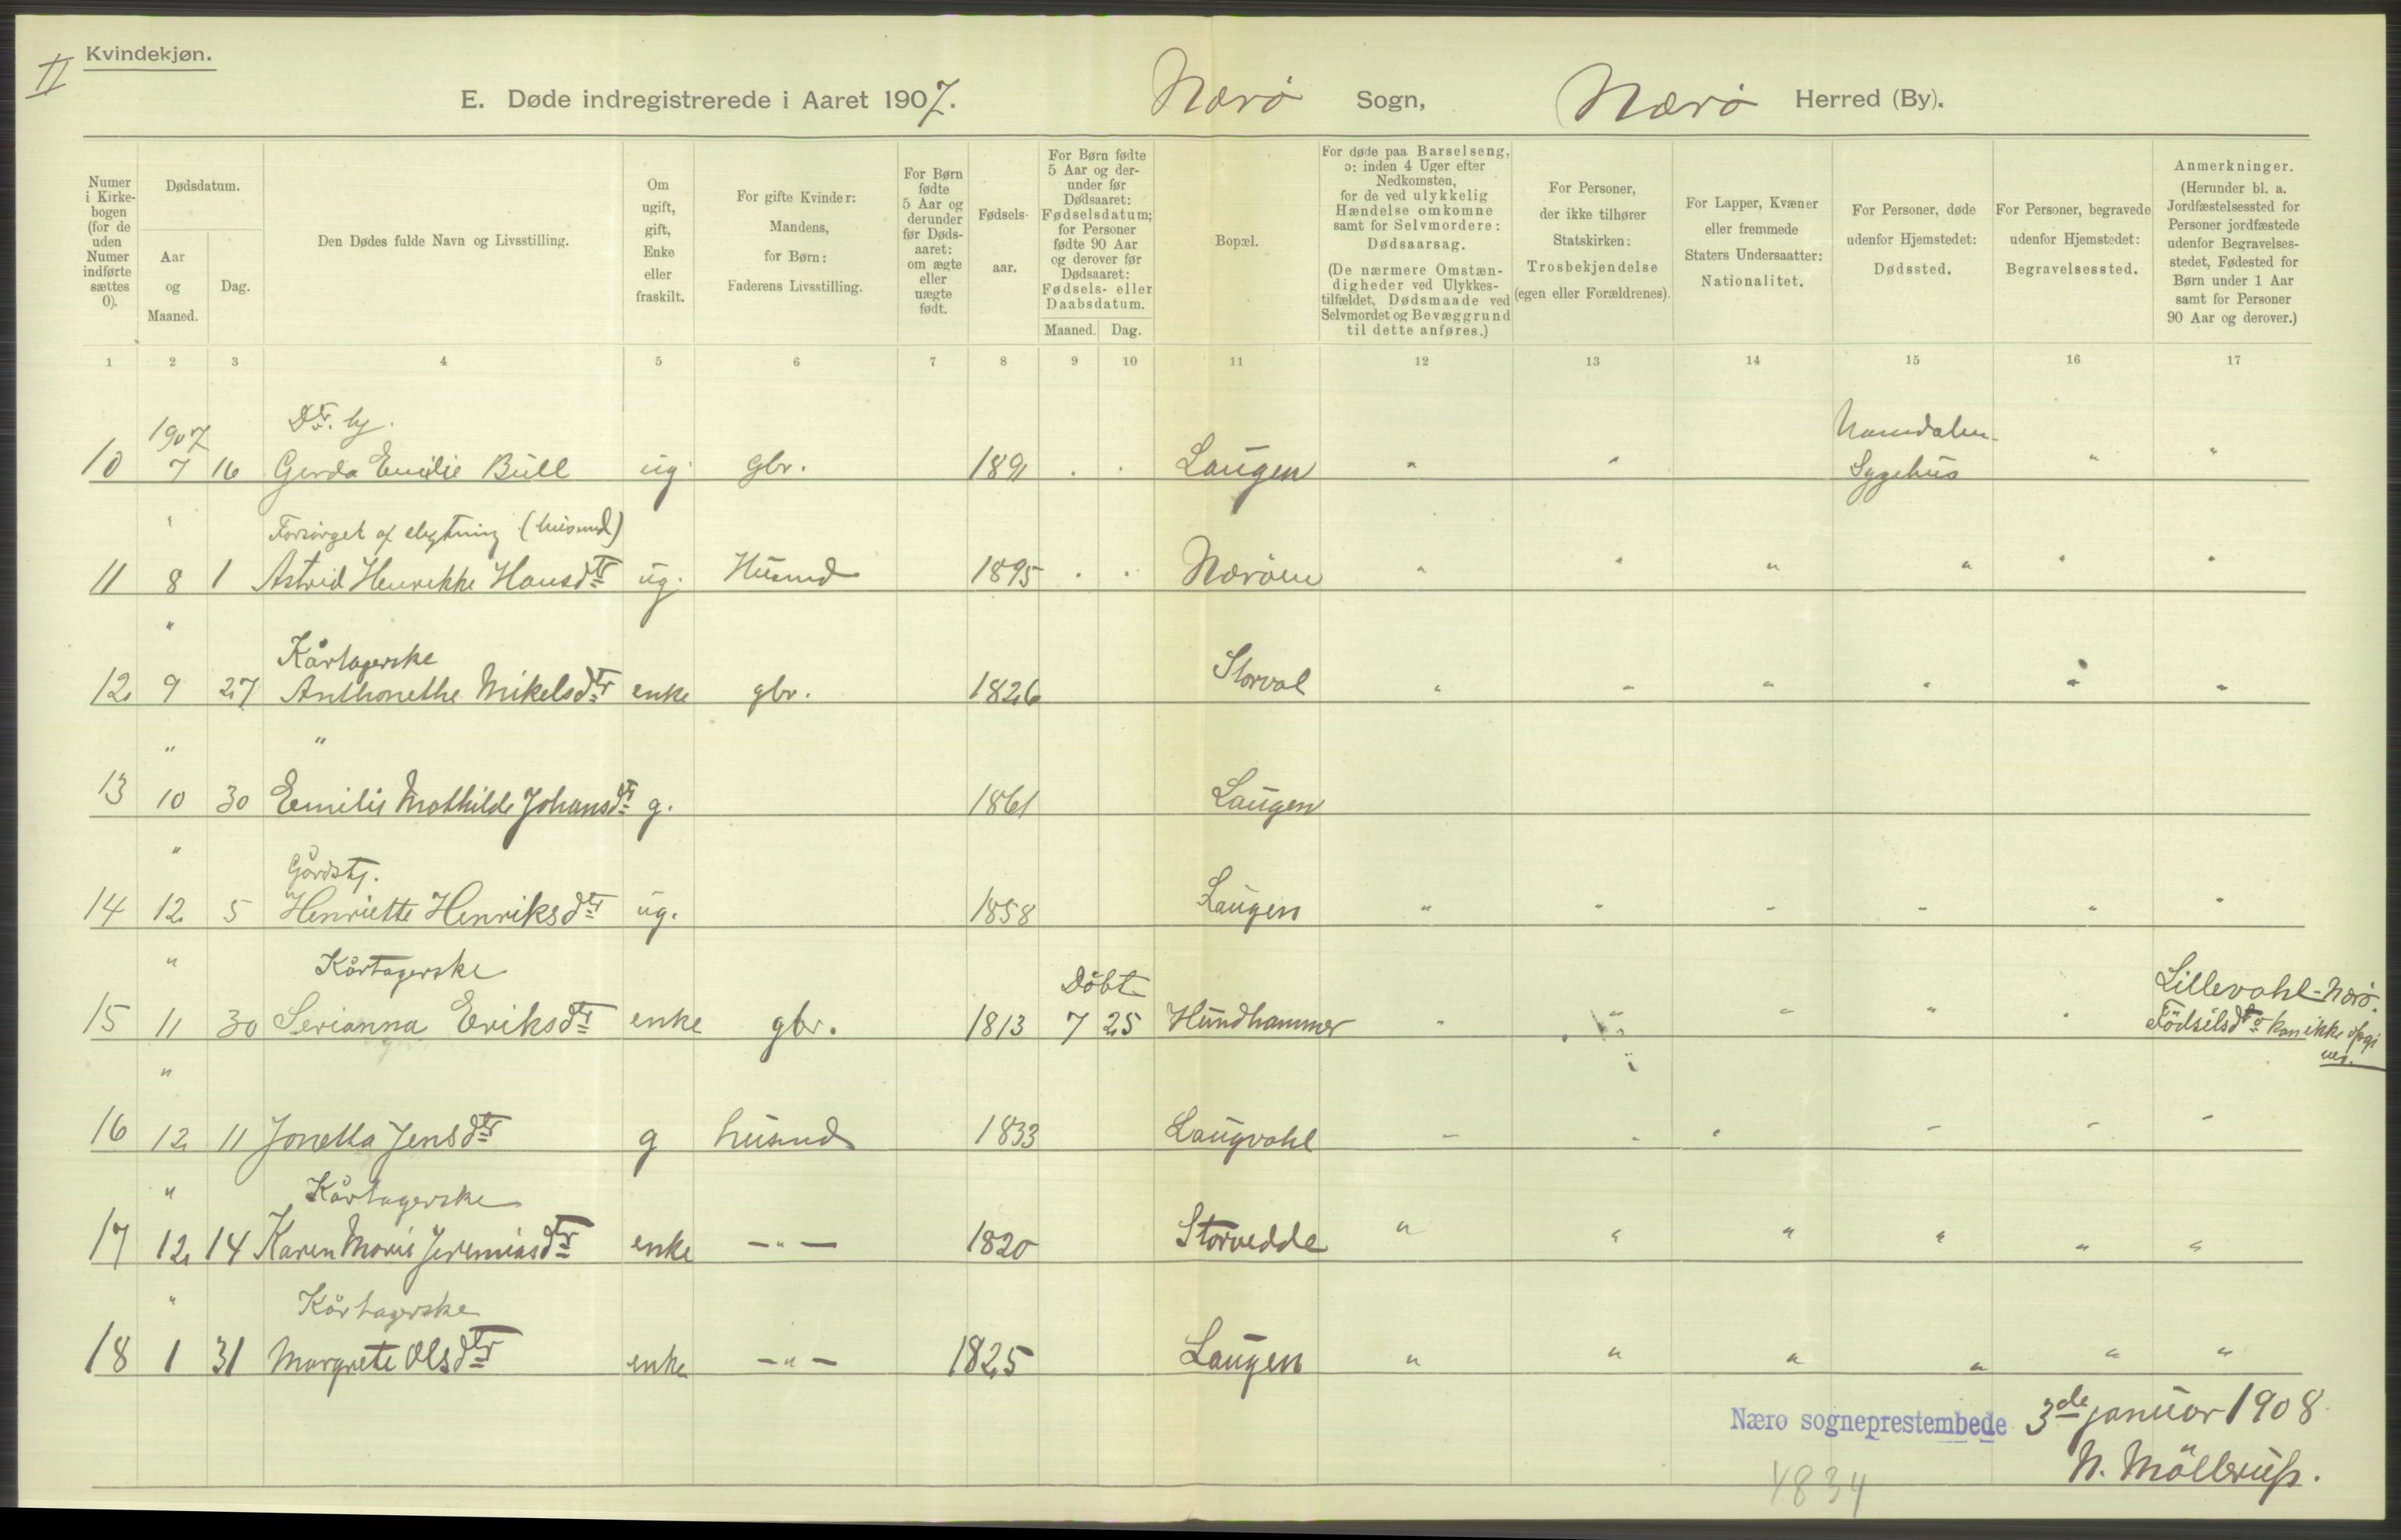 II
Kvindekjøn.
E. Døde indregistrerede i Aaret 1907. Nærø Sogn, Nærø Herred (By).
Numer i Kirke- bogen (for de uden Numer indførte sættes 0).
Dødsdatum.
Aar og Maaned.
Dag.
Den Dødes fulde Navn og Livsstilling.
Om ugift, gift, Enke eller fraskilt.
For gifte Kvinder: Mandens, for Børn: Faderens Livsstilling.
For Børn fødte 5 Aar og derunder før Døds- aaret: om ægte eller uægte født.
Fødsels- aar.
For Børn fødte 5 Aar og der- under før Dødsaaret: Fødselsdatum; for Personer fødte 90 Aar og derover før Dødsaaret: Fødsels- eller Daabsdatum.
Maaned. Dag.
Bopæl.
For døde paa Barselseng, ɔ: inden 4 Uger efter Nedkomsten, for de ved ulykkelig Hændelse omkomne samt for Selvmordere: Dødsaarsag.
(De nærmere Omstæn- digheder ved Ulykkes- tilfældet, Dødsmaade ved Selvmordet og Bevæggrund til dette anføres.)
For Personer, der ikke tilhører Statskirken: Trosbekjendelse (egen eller Forældrenes).
For Lapper, Kvæner eller fremmede Staters Undersaatter: Nationalitet.
For Personer, døde udenfor Hjemstedet: Dødssted.
For Personer, begravede udenfor Hjemstedet: Begravelsessted.
Anmerkninger.
(Herunder bl. a. Jordfæstelsessted for Personer jordfæstede udenfor Begravelses- stedet, Fødested for Børn under 1 Aar samt for Personer 90 Aar og derover.)
1 2 3 4 5 6 7 8 9 10 11 12 13 14 15 16 17
1907 Dtr. Namdalen-
10 7 16 Gerda Emilie Bull ug. gbr. 1891 . . Laugen " " Sygehus " "
" Forsørget af slegtning (husmd)
11 8 1 Astrid Henrikke Hansdtr ug. Husmd 1895 . . Nærøen " " " " " "
" Kårtagerske
12 9 27 Anthonethe Mikelsdtr enke gbr. 1826 Storval " " " " " "
" "
13 10 30 Emilie Mathilde Johansdtr g. 1861 Laugen
" Gårdstj.
14 12 5 Henriette Henriksdtr ug. 1858 Laugen " " " " " "
" Kårtagerske Døbt Lillevahl-Nærø.
15 11 30 Serianna Eriksdtr enke gbr. 1813 7 25 Hundhammer " " " " " Födselsdto kan ikke opgi
ves.
"
16 12 11 Jonetta Jensdtr g husmd 1833 Laugvahl " " " " " "
" Kårtagerske
17 12 14 Karen Marie Jeremiasdtr enke —"— 1820 Storvedde " " " " " "
" Kårtagerske
18 1 31 Margrete Olsdtr enke —"— 1825 Laugen " " " " " "
Nærø sogneprestembede 3de januar 1908
4834